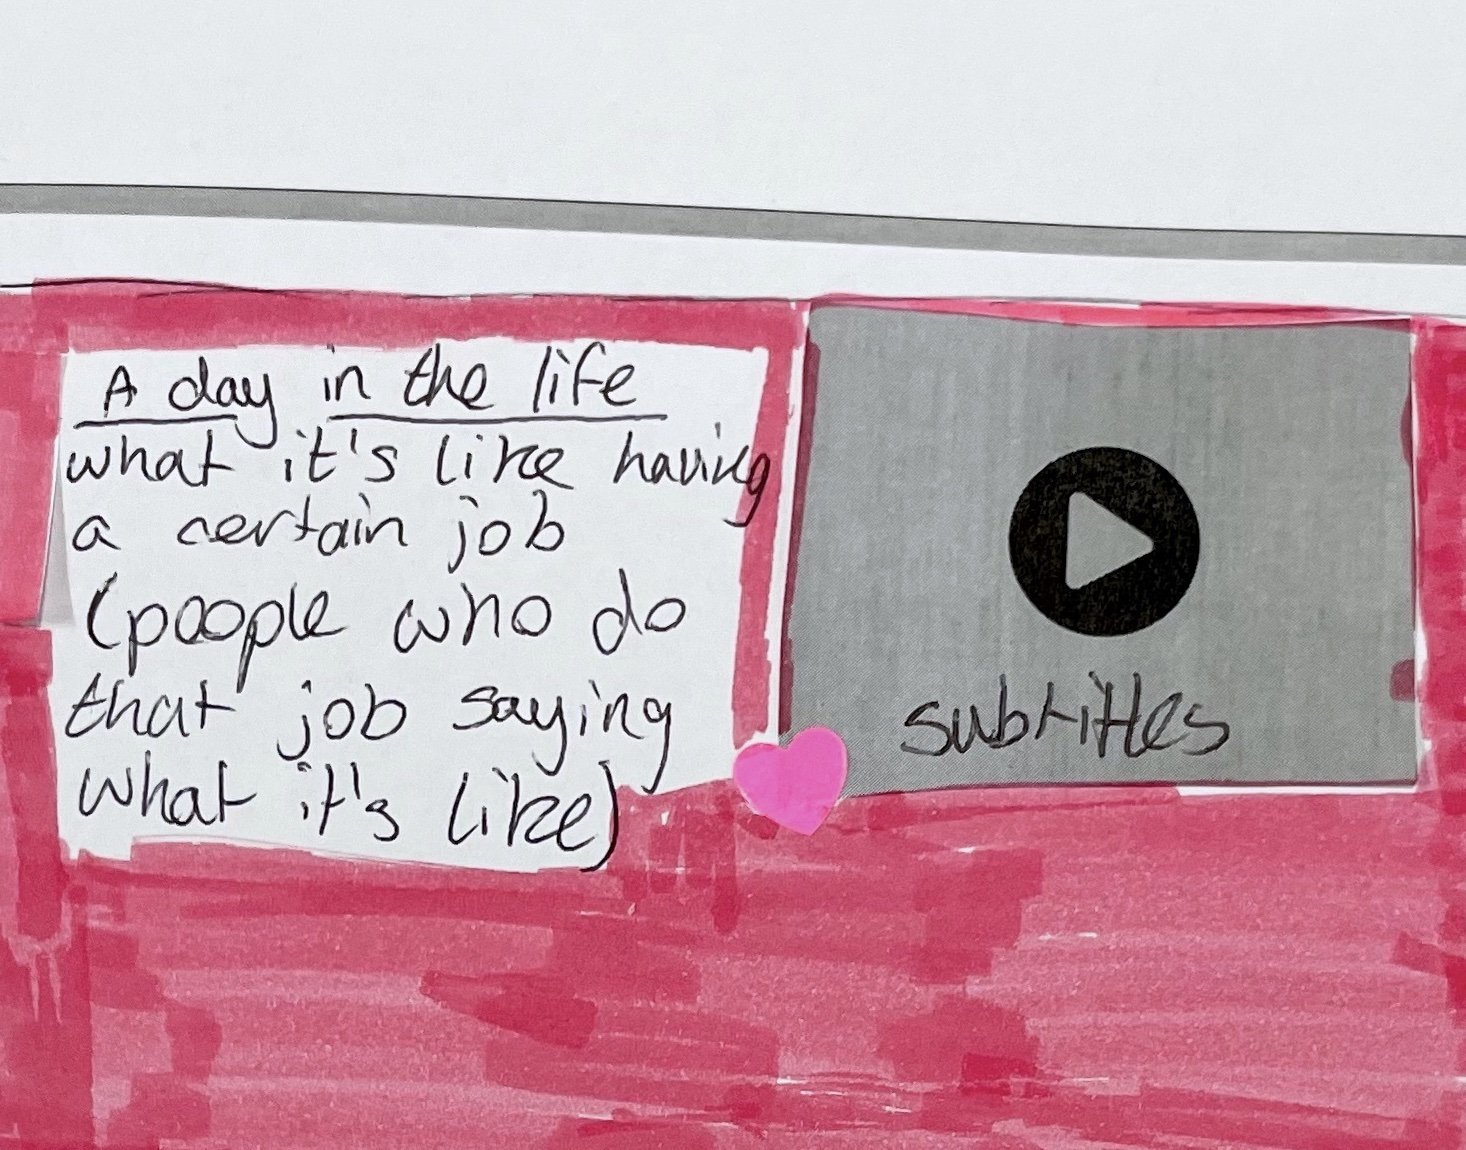 A day in the life
what it's like having
a certain job
(people who do
that job saying
what it's like)
subtitles